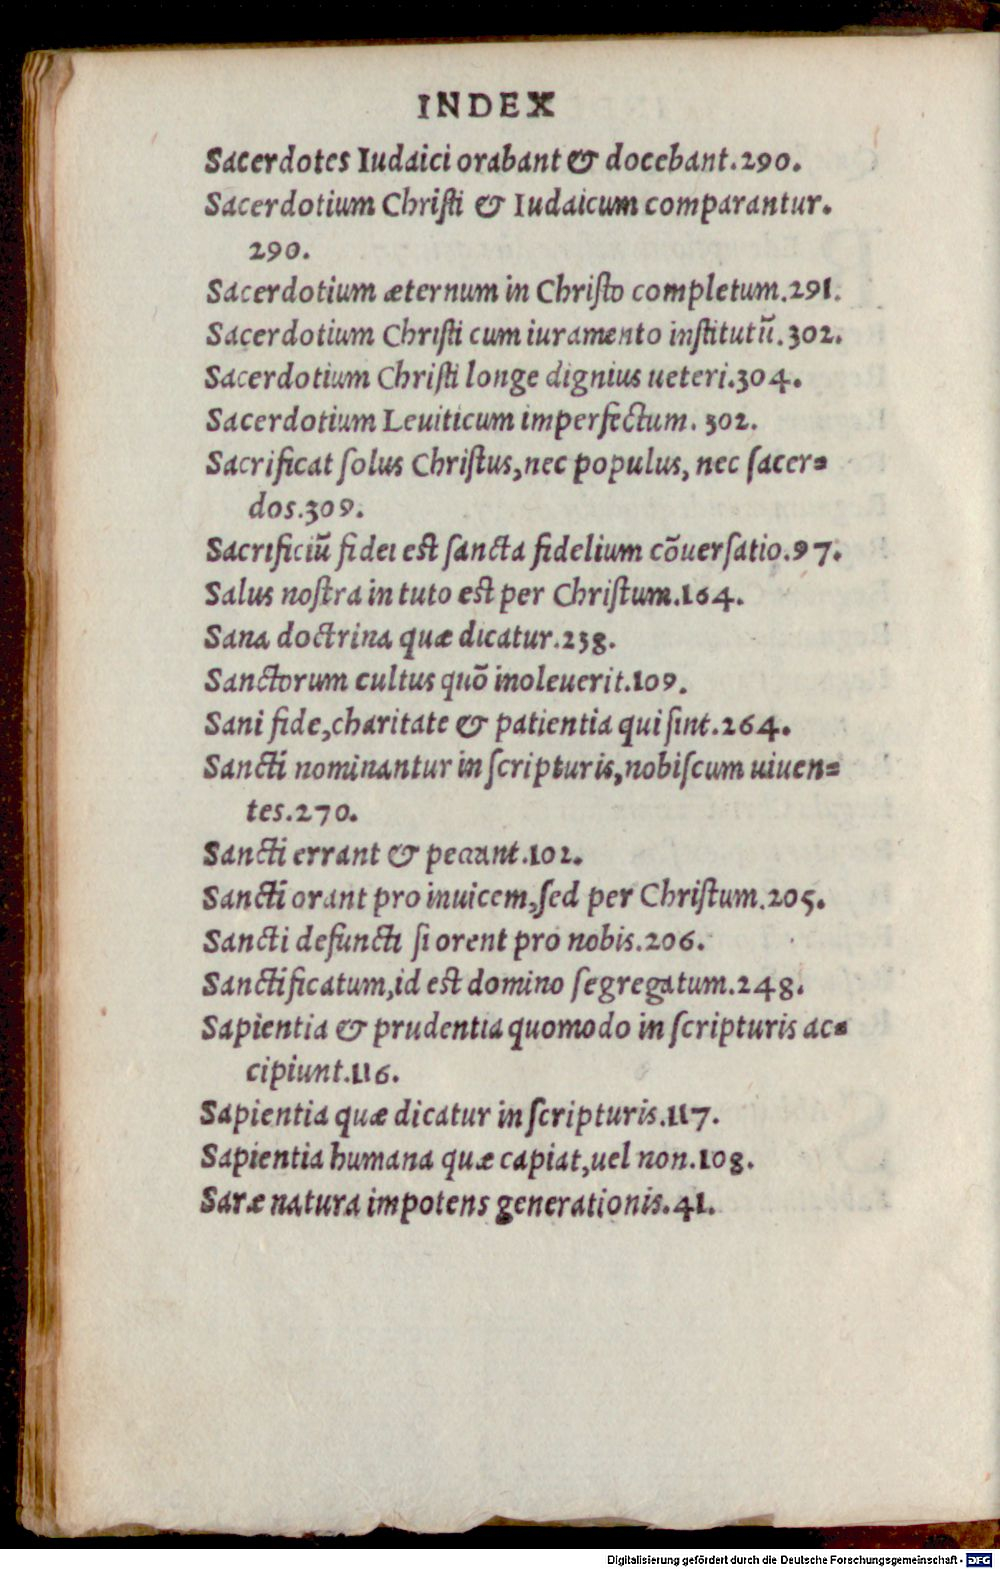 INDEX
Sacerdotes Iudaici orabant & docebant.290.
Sacerdotium Chriſti & Iudaicum comparantur.
290.
Sacerdotium æternum in Chriſto completum.291.
Sacerdotium Chriſti cum iuramento inſtitutū.302.
Sacerdotium Chriſti longe dignius ueteri.304.
Sacerdotium Leuiticum imperfectum. 302.
Sacrificat ſolus Chriſtus,nec populus, nec ſacer=
dos.309.
Sacrificiū fidei eſt ſancta fidelium cōuerſatio.97.
Salus noſtra in tuto eſt per Chriſtum.164.
Sana doctrina quæ dicatur.238.
Sanctorum cultus quō inoleuerit.109.
Sani fide,charitate & patientia qui ſint.264.
Sancti nominantur in ſcripturis,nobiſcum uiuen=
tes.270.
Sancti errant & peccant.102.
Sancti orant pro inuicem,ſed per Chriſtum.205.
Sancti defuncti ſi orent pro nobis.206.
Sanctificatum,id eſt domino ſegregatum.248.
Sapientia & prudentia quomodo in ſcripturis ac=
cipiunt.116.
Sapientia quæ dicatur in ſcripturis.117.
Sapientia humana quæ capiat,uel non.108.
Saræ natura impotens generationis.41.
Digitalisierung gefördert durch die Deutsche Forschungsgemeinschaft - DFG